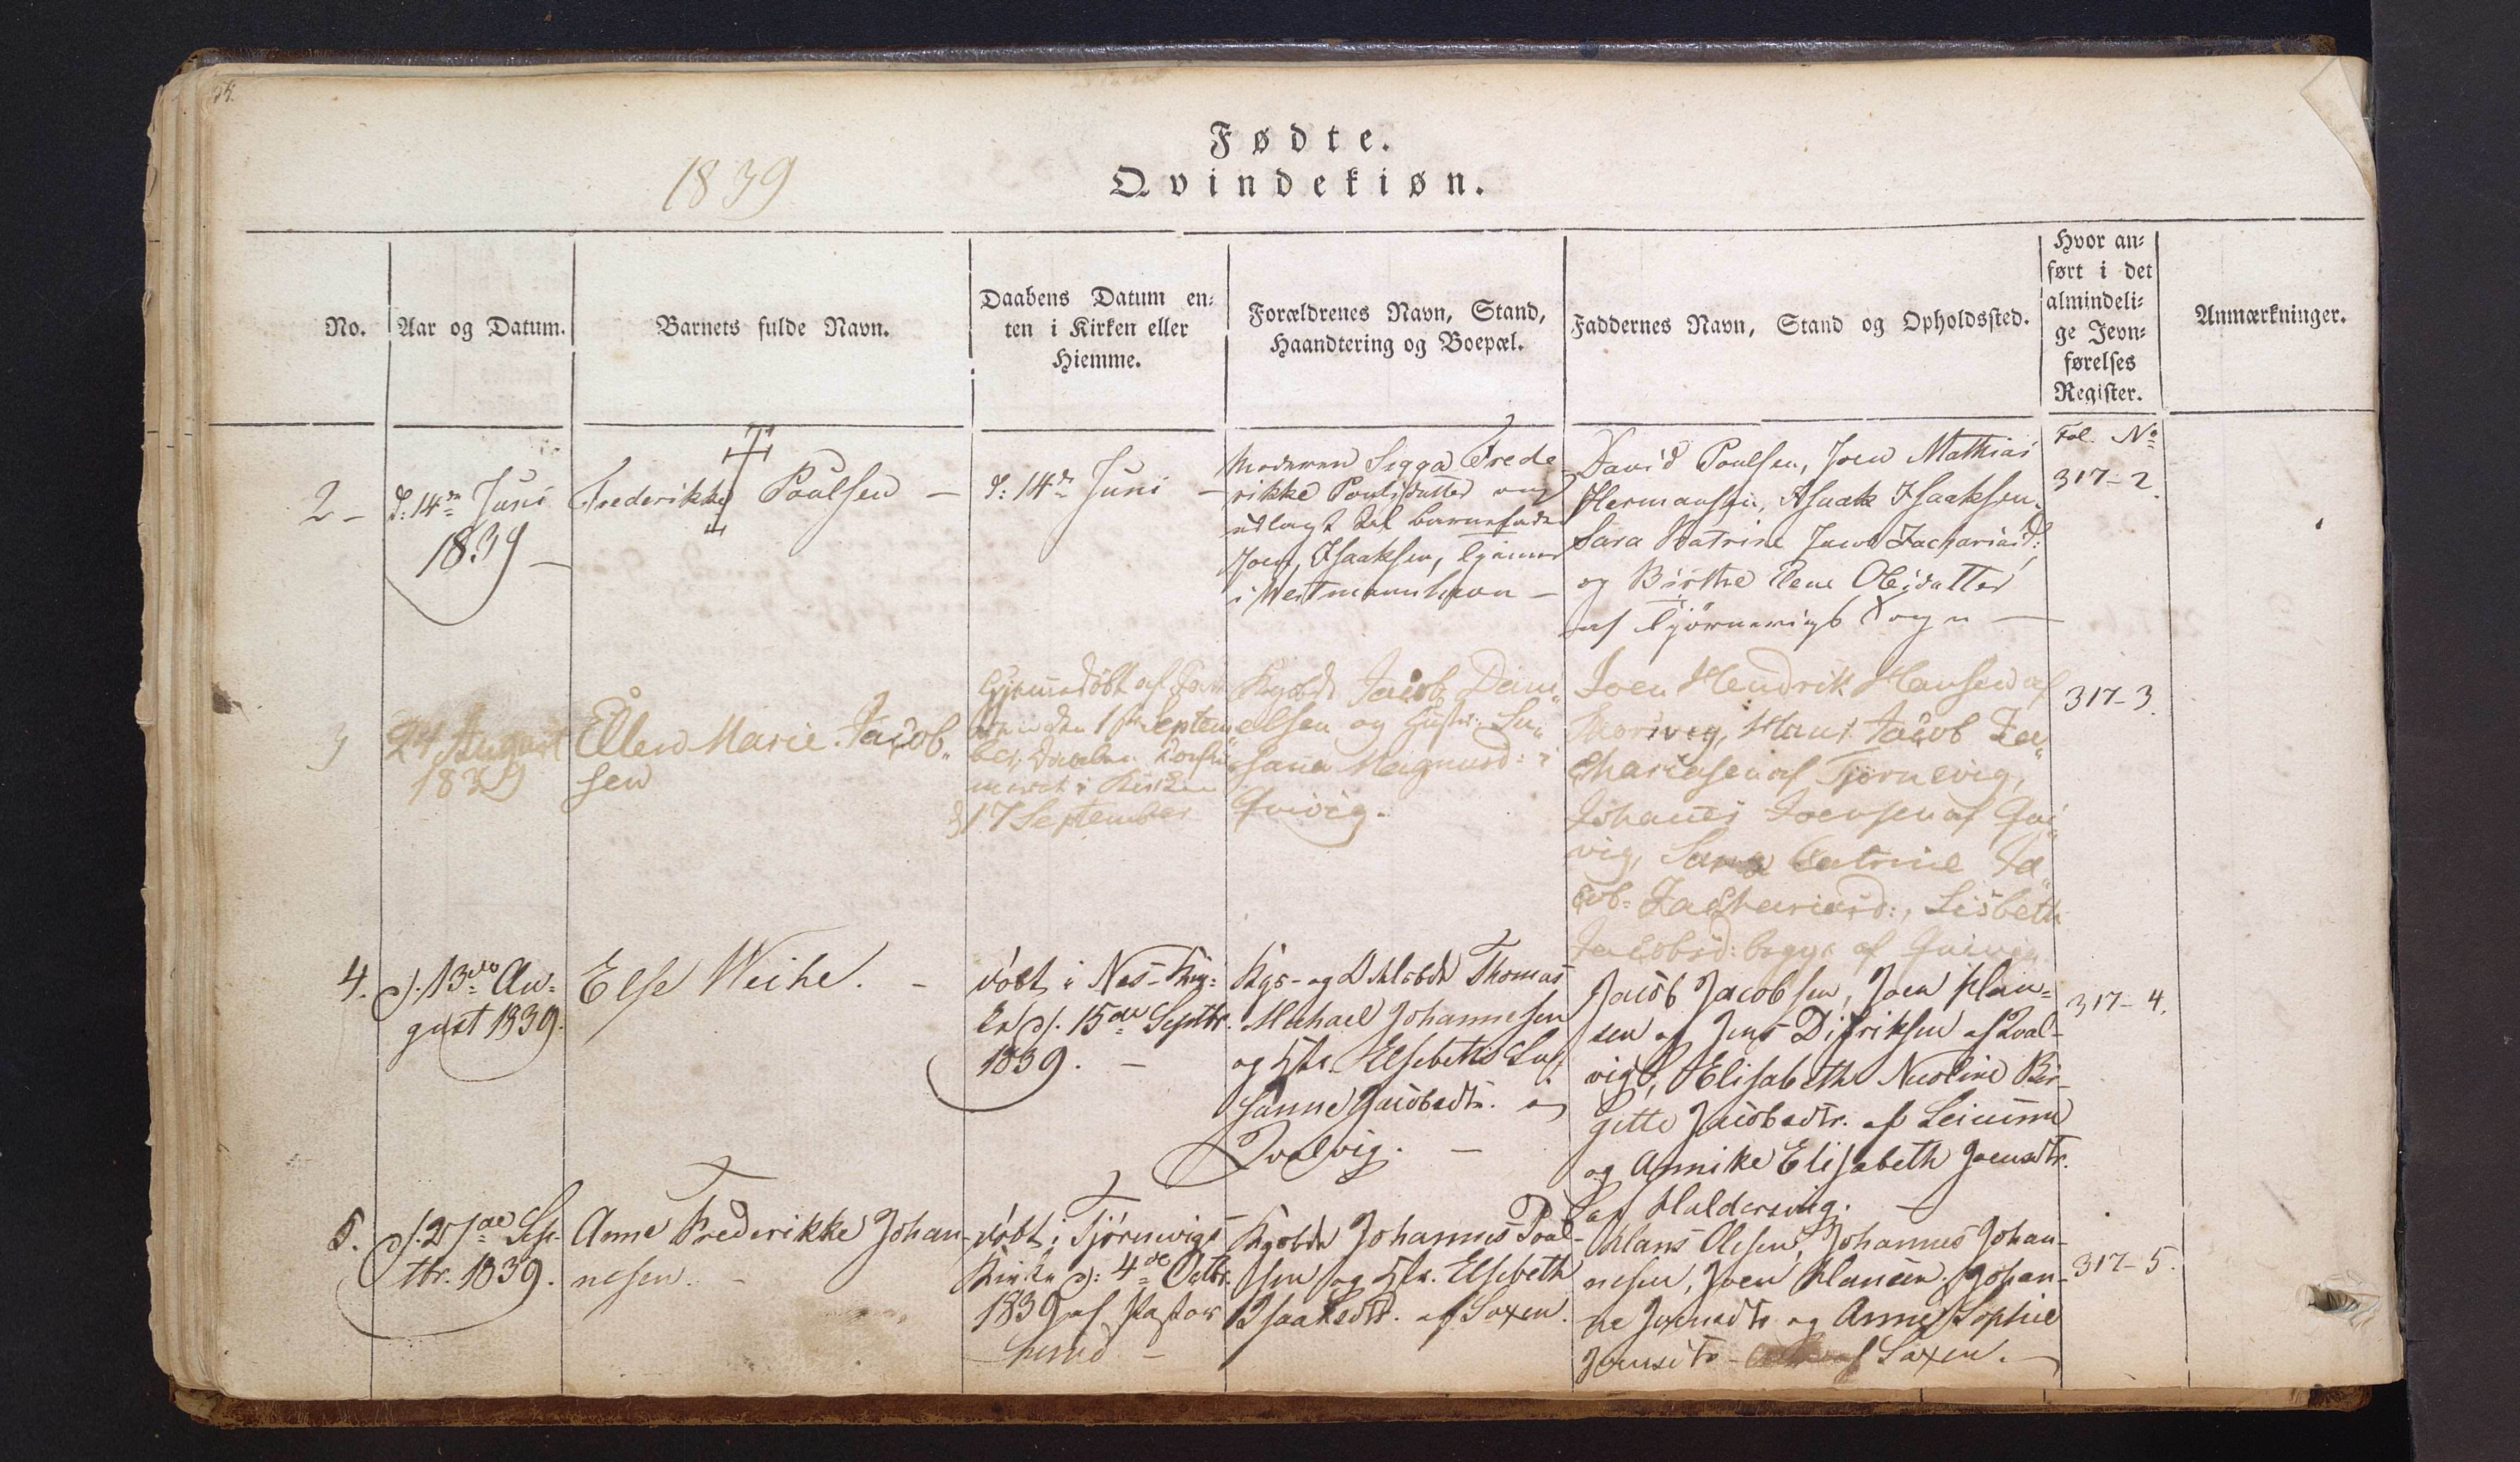 Fødte.
1839
Qvindekiøn.
No.
Aar og Datum.
Barnets fulde Navn.
Daabens Datum en-
ten i Kirken eller
Hiemme.
Forældrenes Navn, Stand,
Haandtering og Boepæl.
Faddernes Navn, Stand og Opholdssted.
Hvor an-
ført i det
almindeli-
ge Jevn-
førelses
Register.
Anmærkninger.
2 -
d: 14de Juni
1839 -
Frederikke Poulsen -
d: 14de Juni -
Moderen Sigga Frede-
rikke Poulsdatter og
udlagt til Barnefader
Joen Isaaksen, tjener
i Westmannhavn -
David Poulsen, Joen Mathias
Hermansen, Isaak Isaaksen,
Sara Katrine Jacob Zachariasd:
og Birthe Elene Olesdatter
af Tjørnevigs Sogn -
Fol. No
317-2.
3
24 August
1839
Ellen Marie Jacob-
sen
Hjemmedøbt af
den 1ste Septem-
ber, Daaben Confir-
meret i Kirken
d 17 September
Kgsbd: Jacob Dani-
elsen og Hustr: Su-
sana Magnusd: i
Qvivig.
Joen Hendrik Hansen af
Thorsvig, Hans Jacob Za-
chariasen af Tjørnevig,
Johanes Joensen af Qvi-
vig, Sara Catrine Ja-
cob-Zachariasd:, Lisbeth
Jacobsd: begge af Qvivig
317-3.
4.
d. 13de Au-
gust 1839.
Else Weihe. -
døbt i Næs-Kir-
ke d. 15de Septbr.
1839. -
Kgs- og Odelsbd: Thomas
Michael Johannesen
og Hstr. Elsebeth Su-
sanne Jacobsdtr. af
Qvalvig. -
Jacob Jacobsen, Joen Han-
sen og Jens Didriksen af Qval-
vig, Elisabeth Nicoline Bir-
gitte Jacobsdtr. af Leinum
og Annike Elisabeth Joensdtr.
af Haldersvig. -
317-4.
5.
d. 27de Sep-
tbr. 1839.
Anne Frederikke Johan-
nesen. -
døbt i Tjørnevigs
Kirke d: 4de Octbr.
1839 af Pastor
Kgsbd: Johannes Poul-
sen og Hstr. Elsebeth
Isaaksdtr. af Saxen.
Hans Olesen, Johannes Johan-
nesen, Joen Hansen, Johan-
ne Joensdtr og Anne Sophie
Joensdtr - af Saxen. -
317-5.